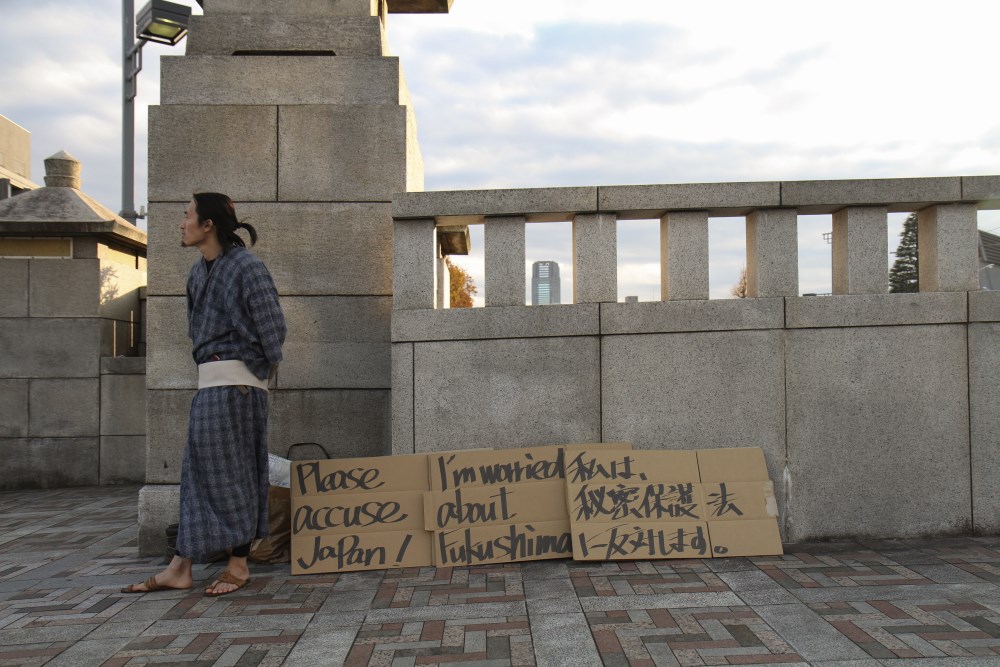 Please
accuse
Japan!
I'm worried
about
Fukushima
私は、
秘密保護法
に反対します。